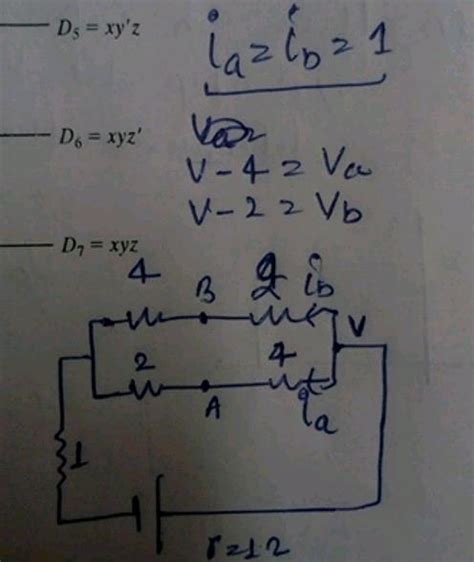 D₅ = xy'z
i_a = i_b = 1
D₆ = xyz'
V - 4 = Va
V - 2 = Vb
D₇ = xyz
4 B 2 i_b
V
2 A 4 i_a
1
r=12